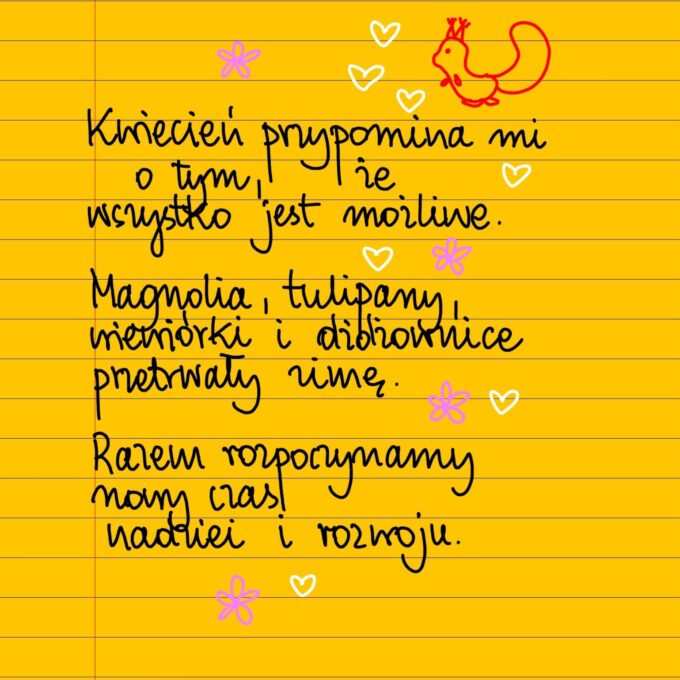 Kwiecień przypomina mi
o tym, że
wszystko jest możliwe.
Magnolia, tulipany,
wiewiórki i dżdżownice
przetrwały zimę.
Razem rozpoczynamy
nowy czas
nadziei i rozwoju.